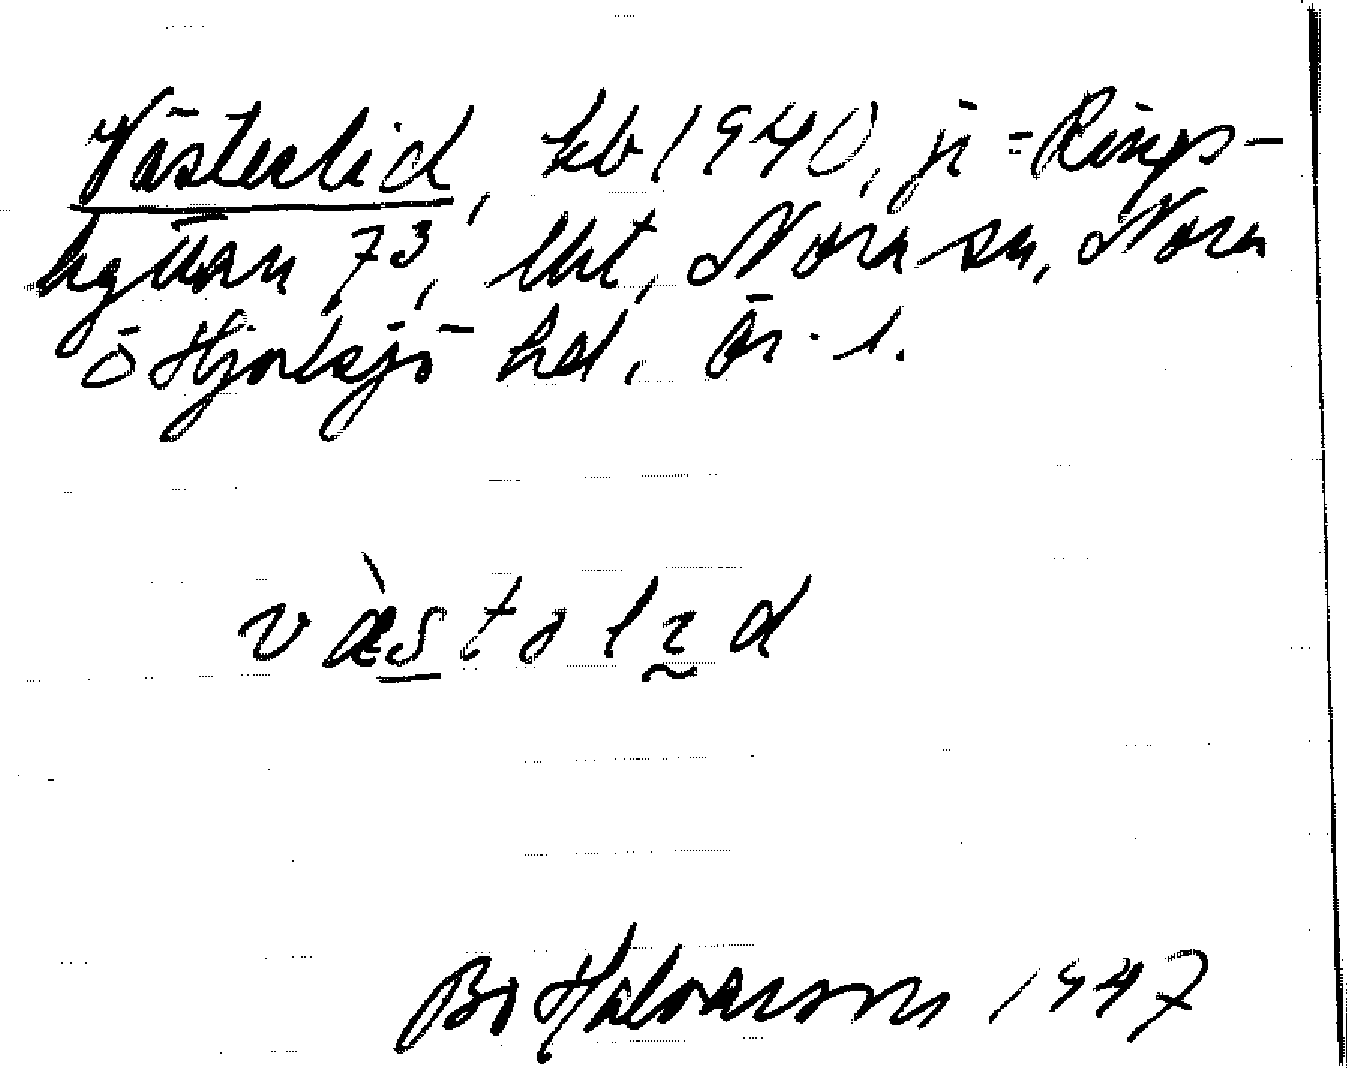 Västerlid, kb 1940, ji = Rings-
hyttan 73, lht, Nora sn, Nora
o Hjulsjö hd, Ör. l.
væstəlɪd
Bo Halvarson 1947